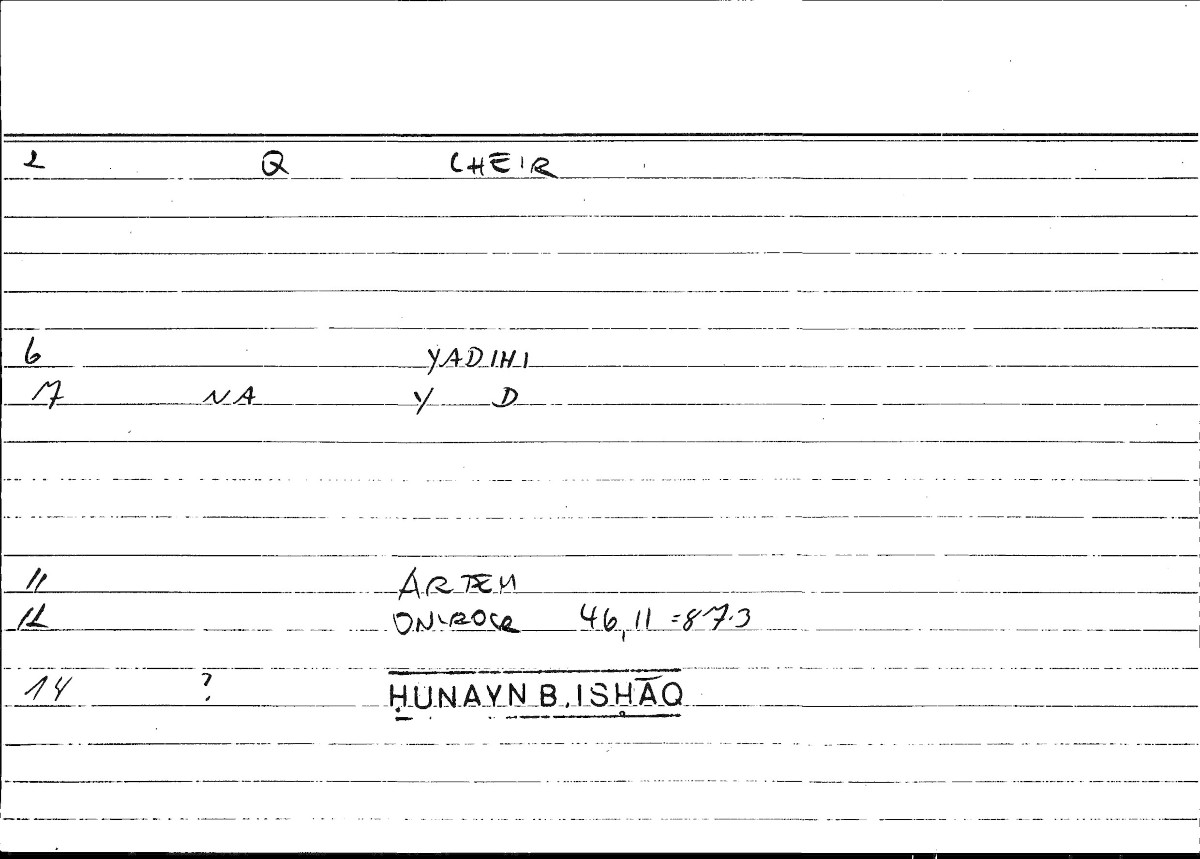 2 Q CHEIR
6 YADIHI
7 NA Y D
11 ARTEM
12 ONIROCR 46,11 =87.3
14 ? ḤUNAYN B. ISḤĀQ